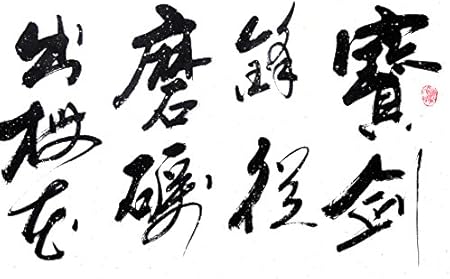 寶劍
鋒從
磨礪
出梅花